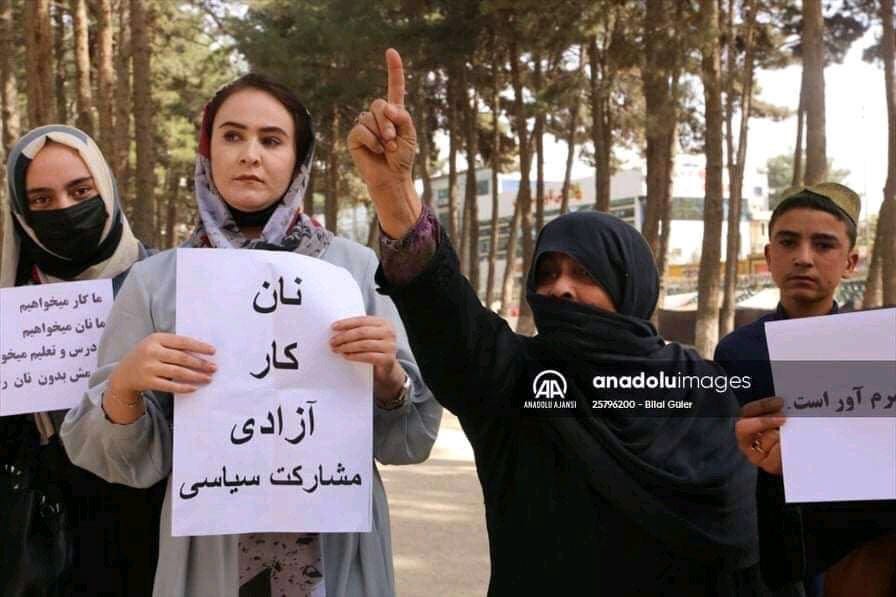 ما کار میخواهیم
ما نان میخواهیم
درس و تعلیم
بدون نان
نان
کار
آزادی
مشارکت سیاسی
آور است.
AA
ANADOLU AJANSI
anadoluimages
25796200 - Bilal Güler